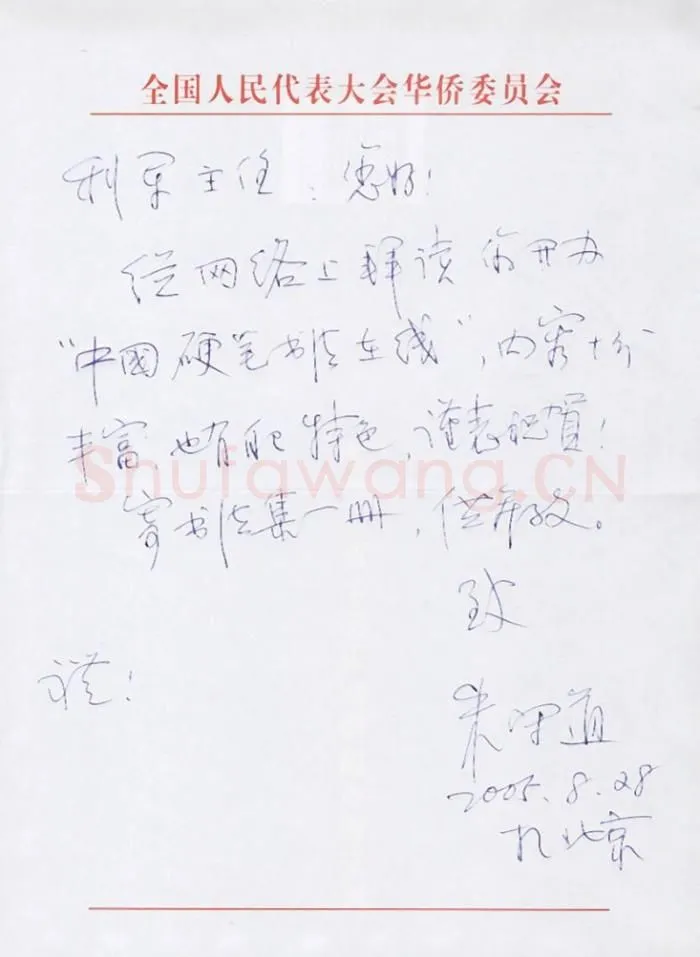 全国人民代表大会华侨委员会
利军主任：您好！
从网络上拜读你开办
“中國硬笔书法在线”，内容十分
丰富，也有自己特色，谨表祝贺！
寄书法集一册，供参考。
致
礼！
朱守道
2005.8.28
于北京
Shufawang.CN